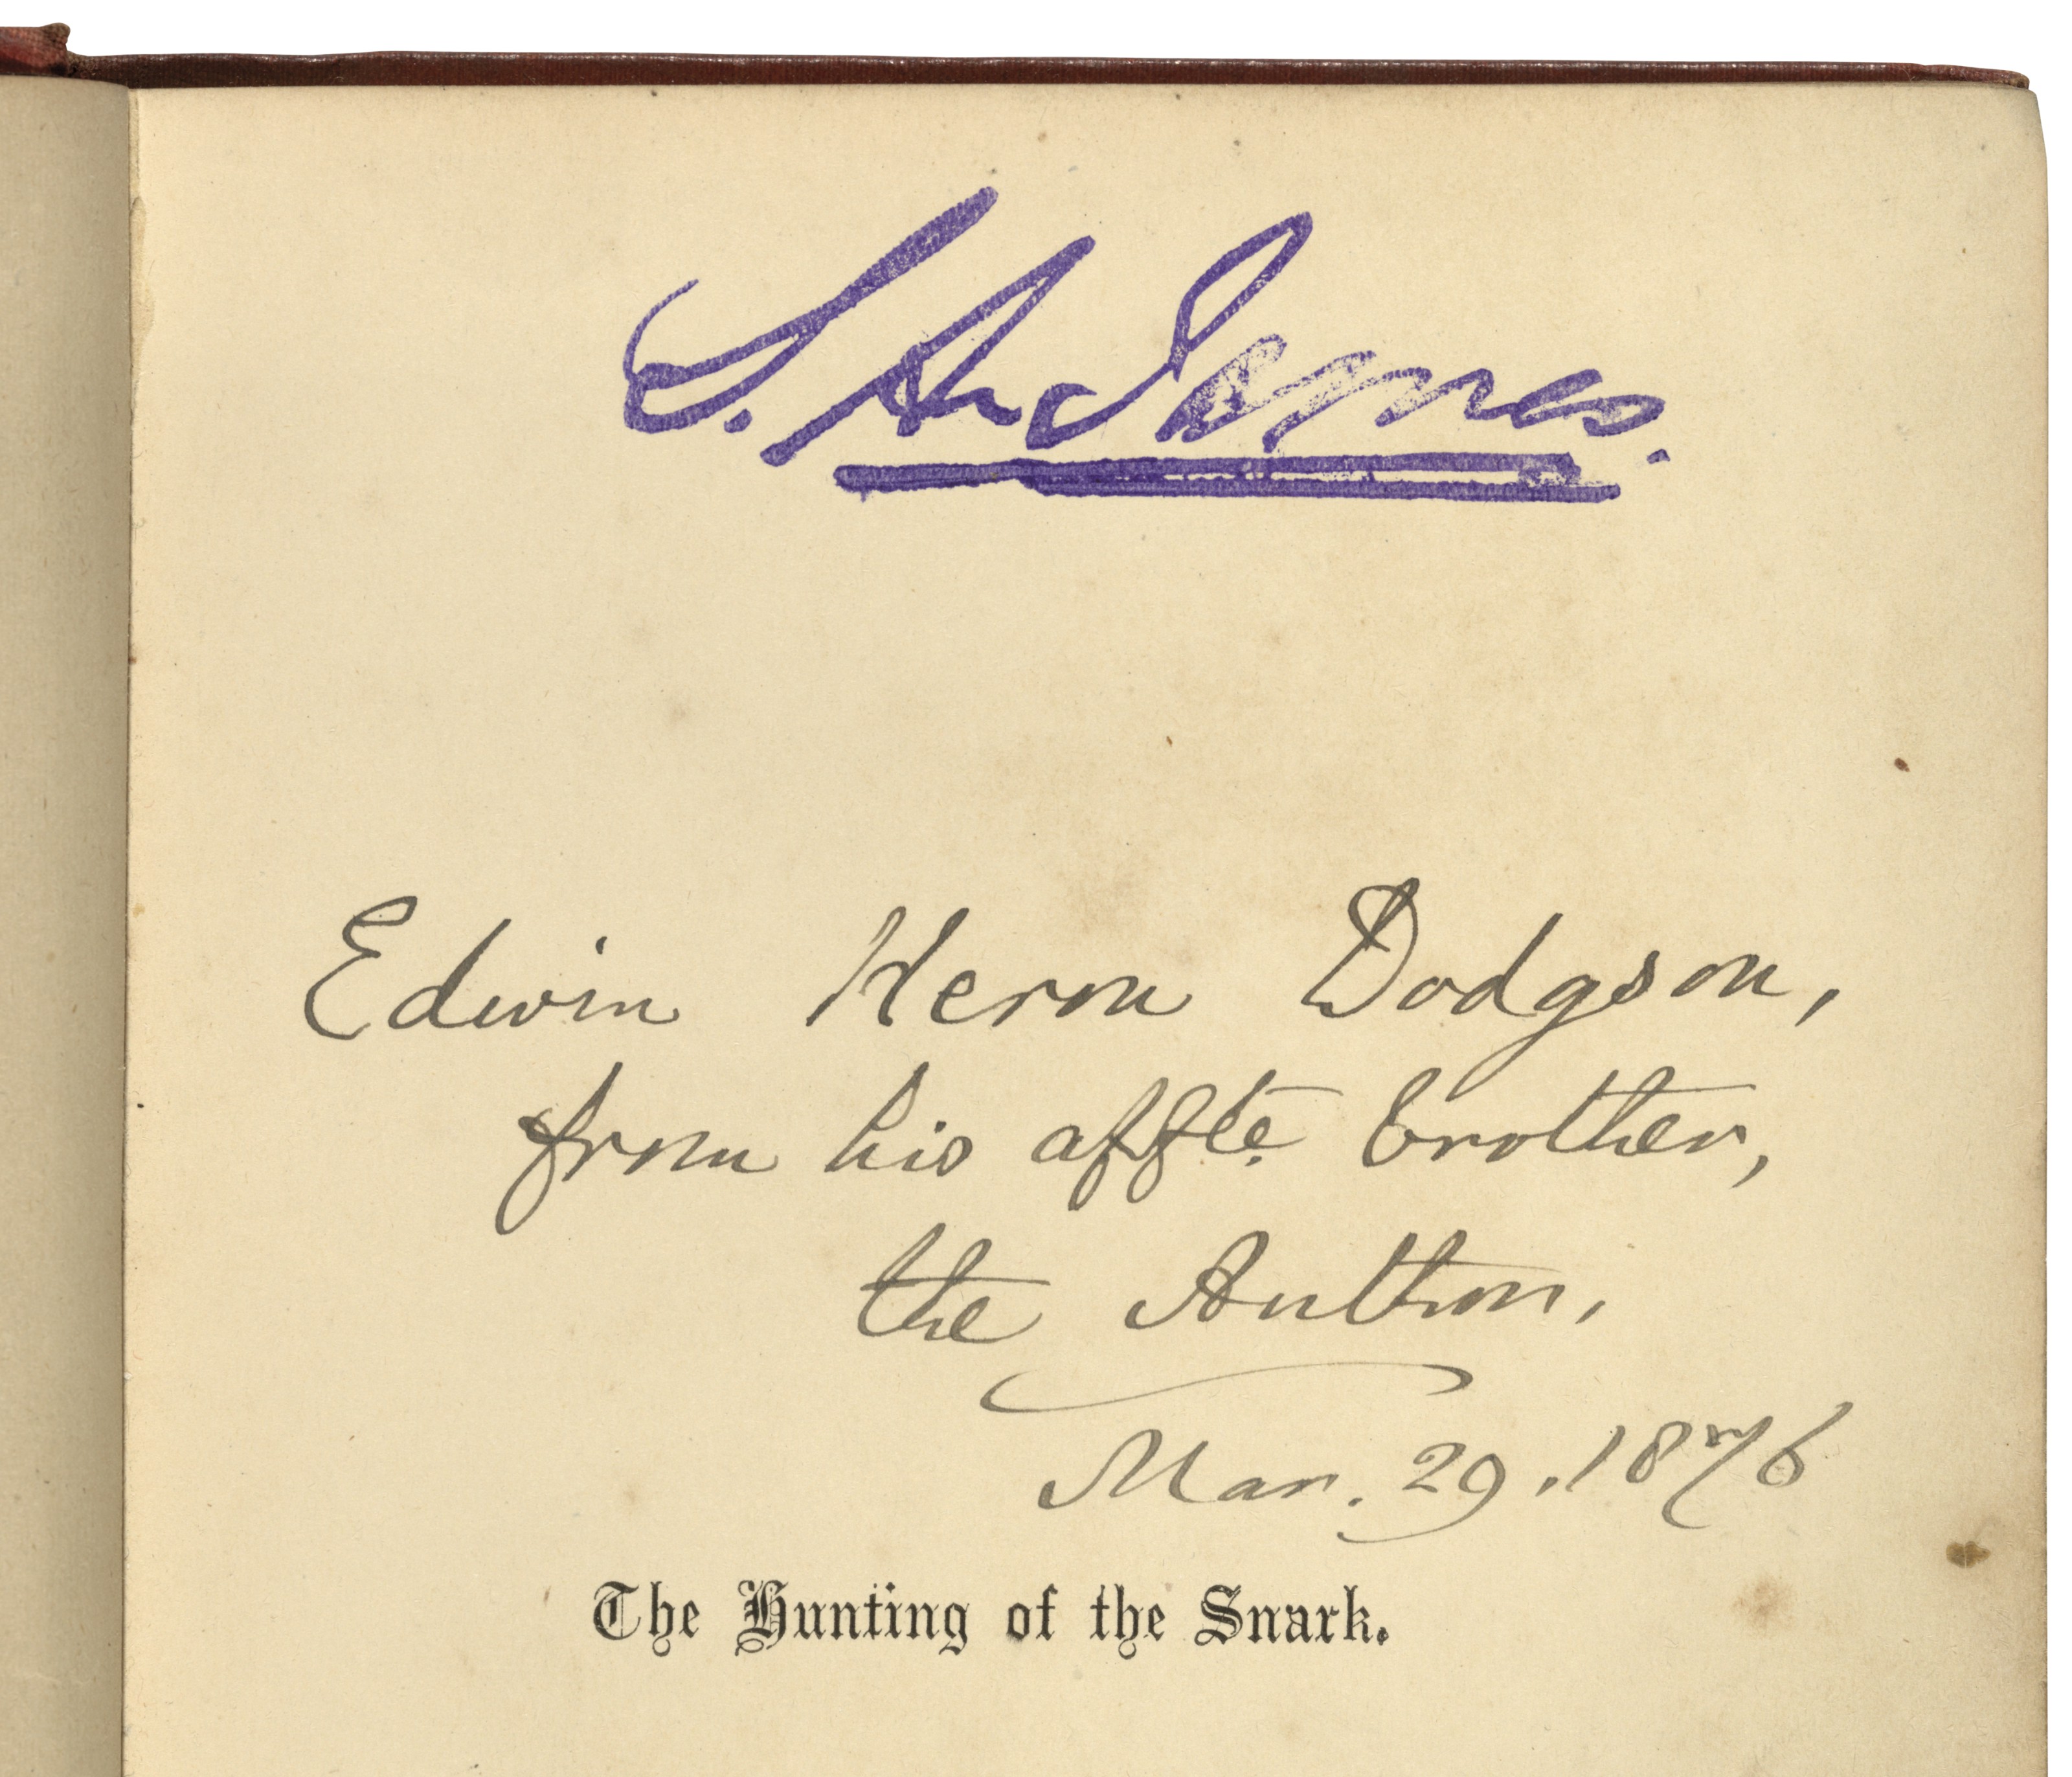 S. A. James.
Edwin Heron Dodgson,
from his affte. brother,
the Author.
Mar. 29. 1876
The Hunting of the Snark.